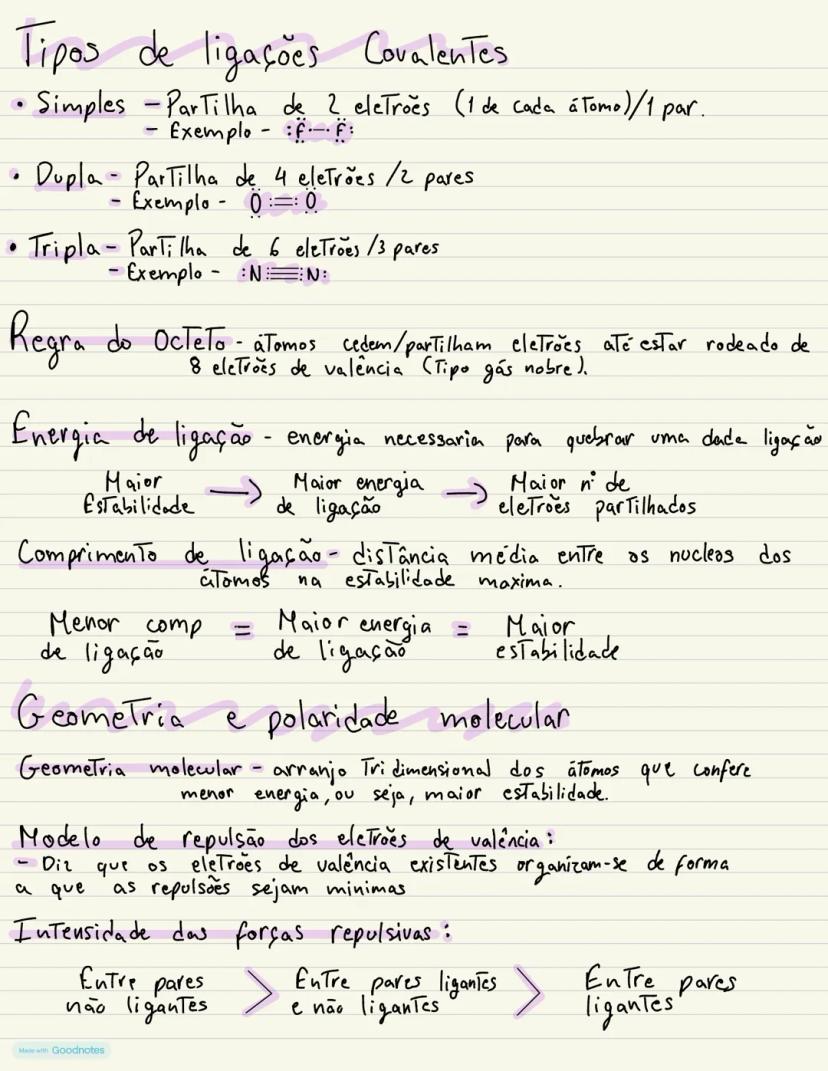 Tipos de ligações Covalentes
• Simples - Partilha de 2 eletrões (1 de cada átomo)/1 par.
- Exemplo - :F̈—F̈:
• Dupla - Partilha de 4 eletrões /2 pares
- Exemplo - Ö=Ö
• Tripla - Partilha de 6 eletrões /3 pares
- Exemplo - :N≡N:
Regra do Octeto - átomos cedem/partilham eletrões até estar rodeado de
8 eletrões de valência (Tipo gás nobre).
Energia de ligação - energia necessaria para quebrar uma dada ligação
Maior Estabilidade → Maior energia de ligação → Maior nº de eletrões partilhados
Comprimento de ligação - distância média entre os nucleos dos
átomos na estabilidade maxima.
Menor comp de ligação = Maior energia de ligação = Maior estabilidade
Geometria e polaridade molecular
Geometria molecular - arranjo Tridimensional dos átomos que confere
menor energia, ou seja, maior estabilidade.
Modelo de repulsão dos eletrões de valência:
- Diz que os eletrões de valência existentes organizam-se de forma
a que as repulsões sejam minimas
Intensidade das forças repulsivas:
Entre pares não ligantes > Entre pares ligantes e não ligantes > Entre pares ligantes
Made with Goodnotes